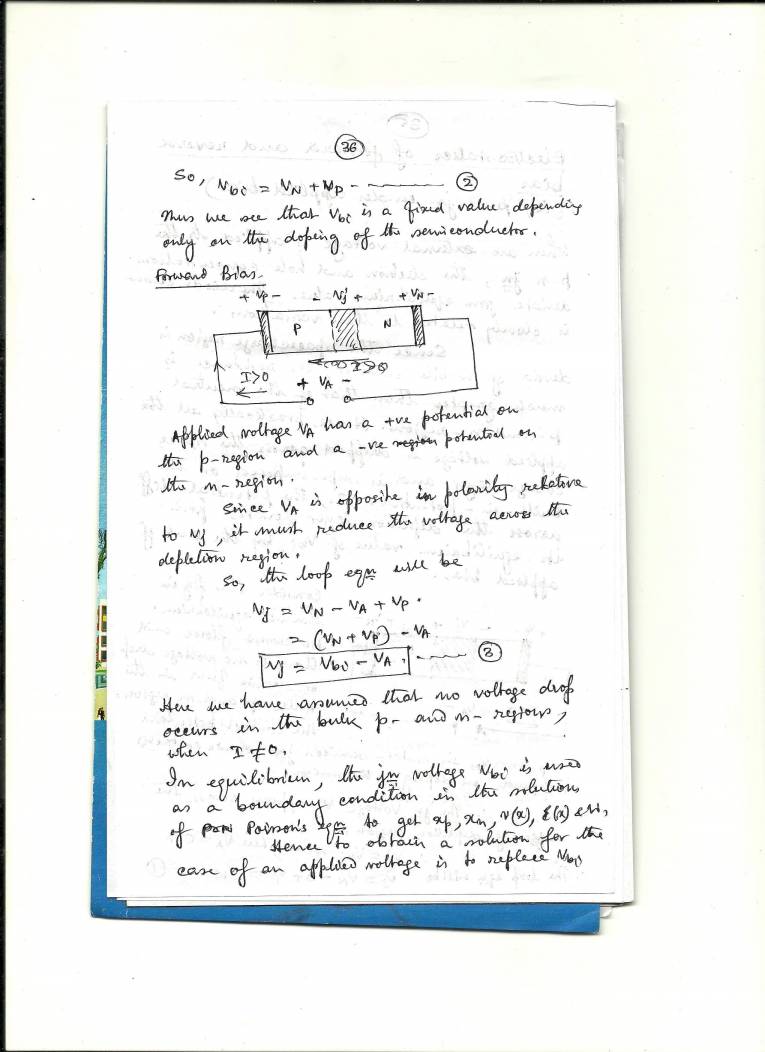 36
So, Vbi = VN + VP - ②
Thus we see that Vbi is a fixed value depending
only on the doping of the semiconductor.
Forward Bias.
+ VP - - Vj + + VN -
P N
I>0 + VA -
Applied voltage VA has a +ve potential on
the p-region and a -ve region potential on
the n-region.
Since VA is opposite in polarity relative
to Vj, it must reduce the voltage across the
depletion region.
So, the loop eqn will be
Vj = VN - VA + VP.
= (VN + VP) - VA
Vj = Vbi - VA. - ③
Here we have assumed that no voltage drop
occurs in the bulk p- and n- regions,
when I ≠ 0.
In equilibrium, the jn voltage Vbi is used
as a boundary condition in the solutions
of Poisson's eqn to get xp, xn, v(x), E(x)
Hence to obtain a solution for the
case of an applied voltage is to replace Vbi